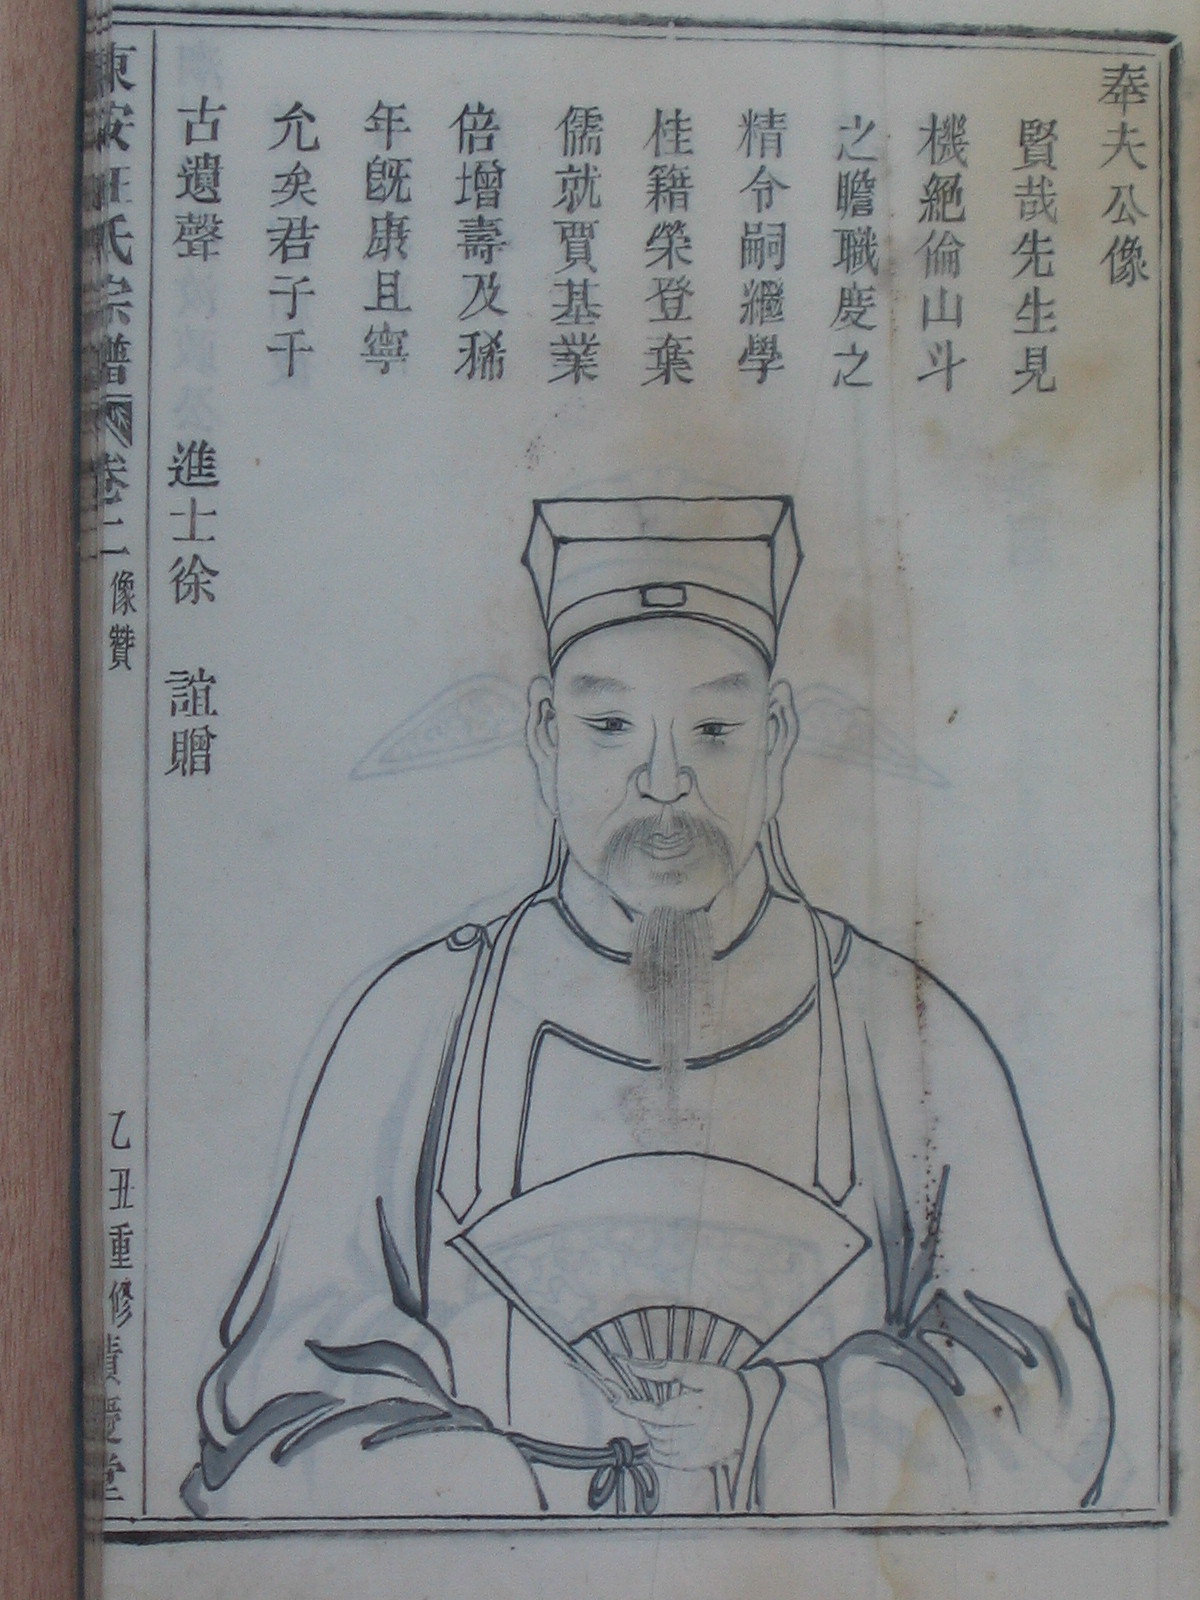 奉夫公像
賢哉先生見
機絕倫山斗
之瞻職慶之
精令嗣繼學
桂籍榮登棄
儒就賈基業
倍增壽及稀
年旣康且寧
允矣君子千
古遺聲
進士徐 誼贈
東安汪氏宗譜
卷二
像贊
乙丑重修
積慶堂